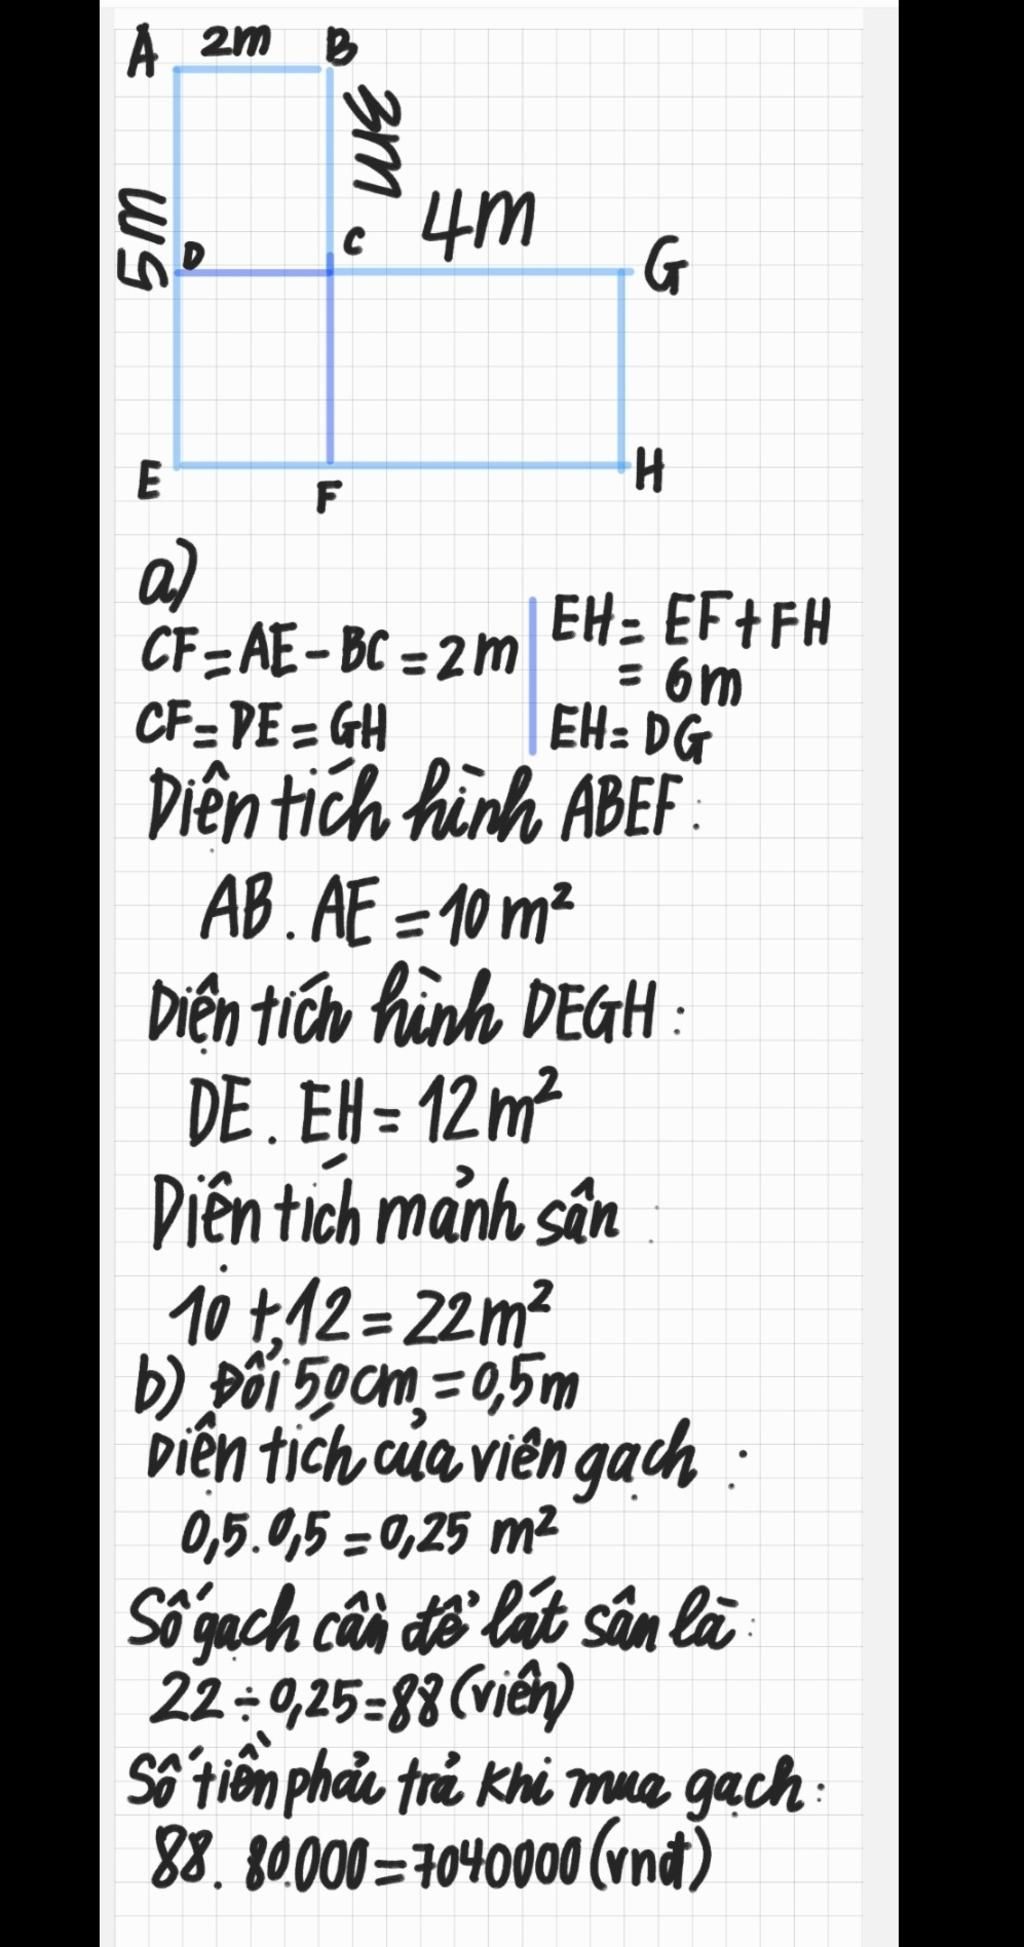 A 2m B
3m
5m
4m
D C G
E F H
a)
CF = AE - BC = 2 m
CF = DE = GH
EH = EF + FH
= 6m
EH = DG
Diện tích hình ABEF:
AB . AE = 10 m²
Diện tích hình DEGH:
DE . EH = 12 m²
Diện tích mảnh sân:
10 + 12 = 22 m²
b) Đổi 50 cm = 0,5 m
Diện tích của viên gạch:
0,5 . 0,5 = 0,25 m²
Số gạch cần để lát sân là:
22 ÷ 0,25 = 88 (viên)
Số tiền phải trả khi mua gạch:
88 . 80.000 = 7040000 (vnđ)